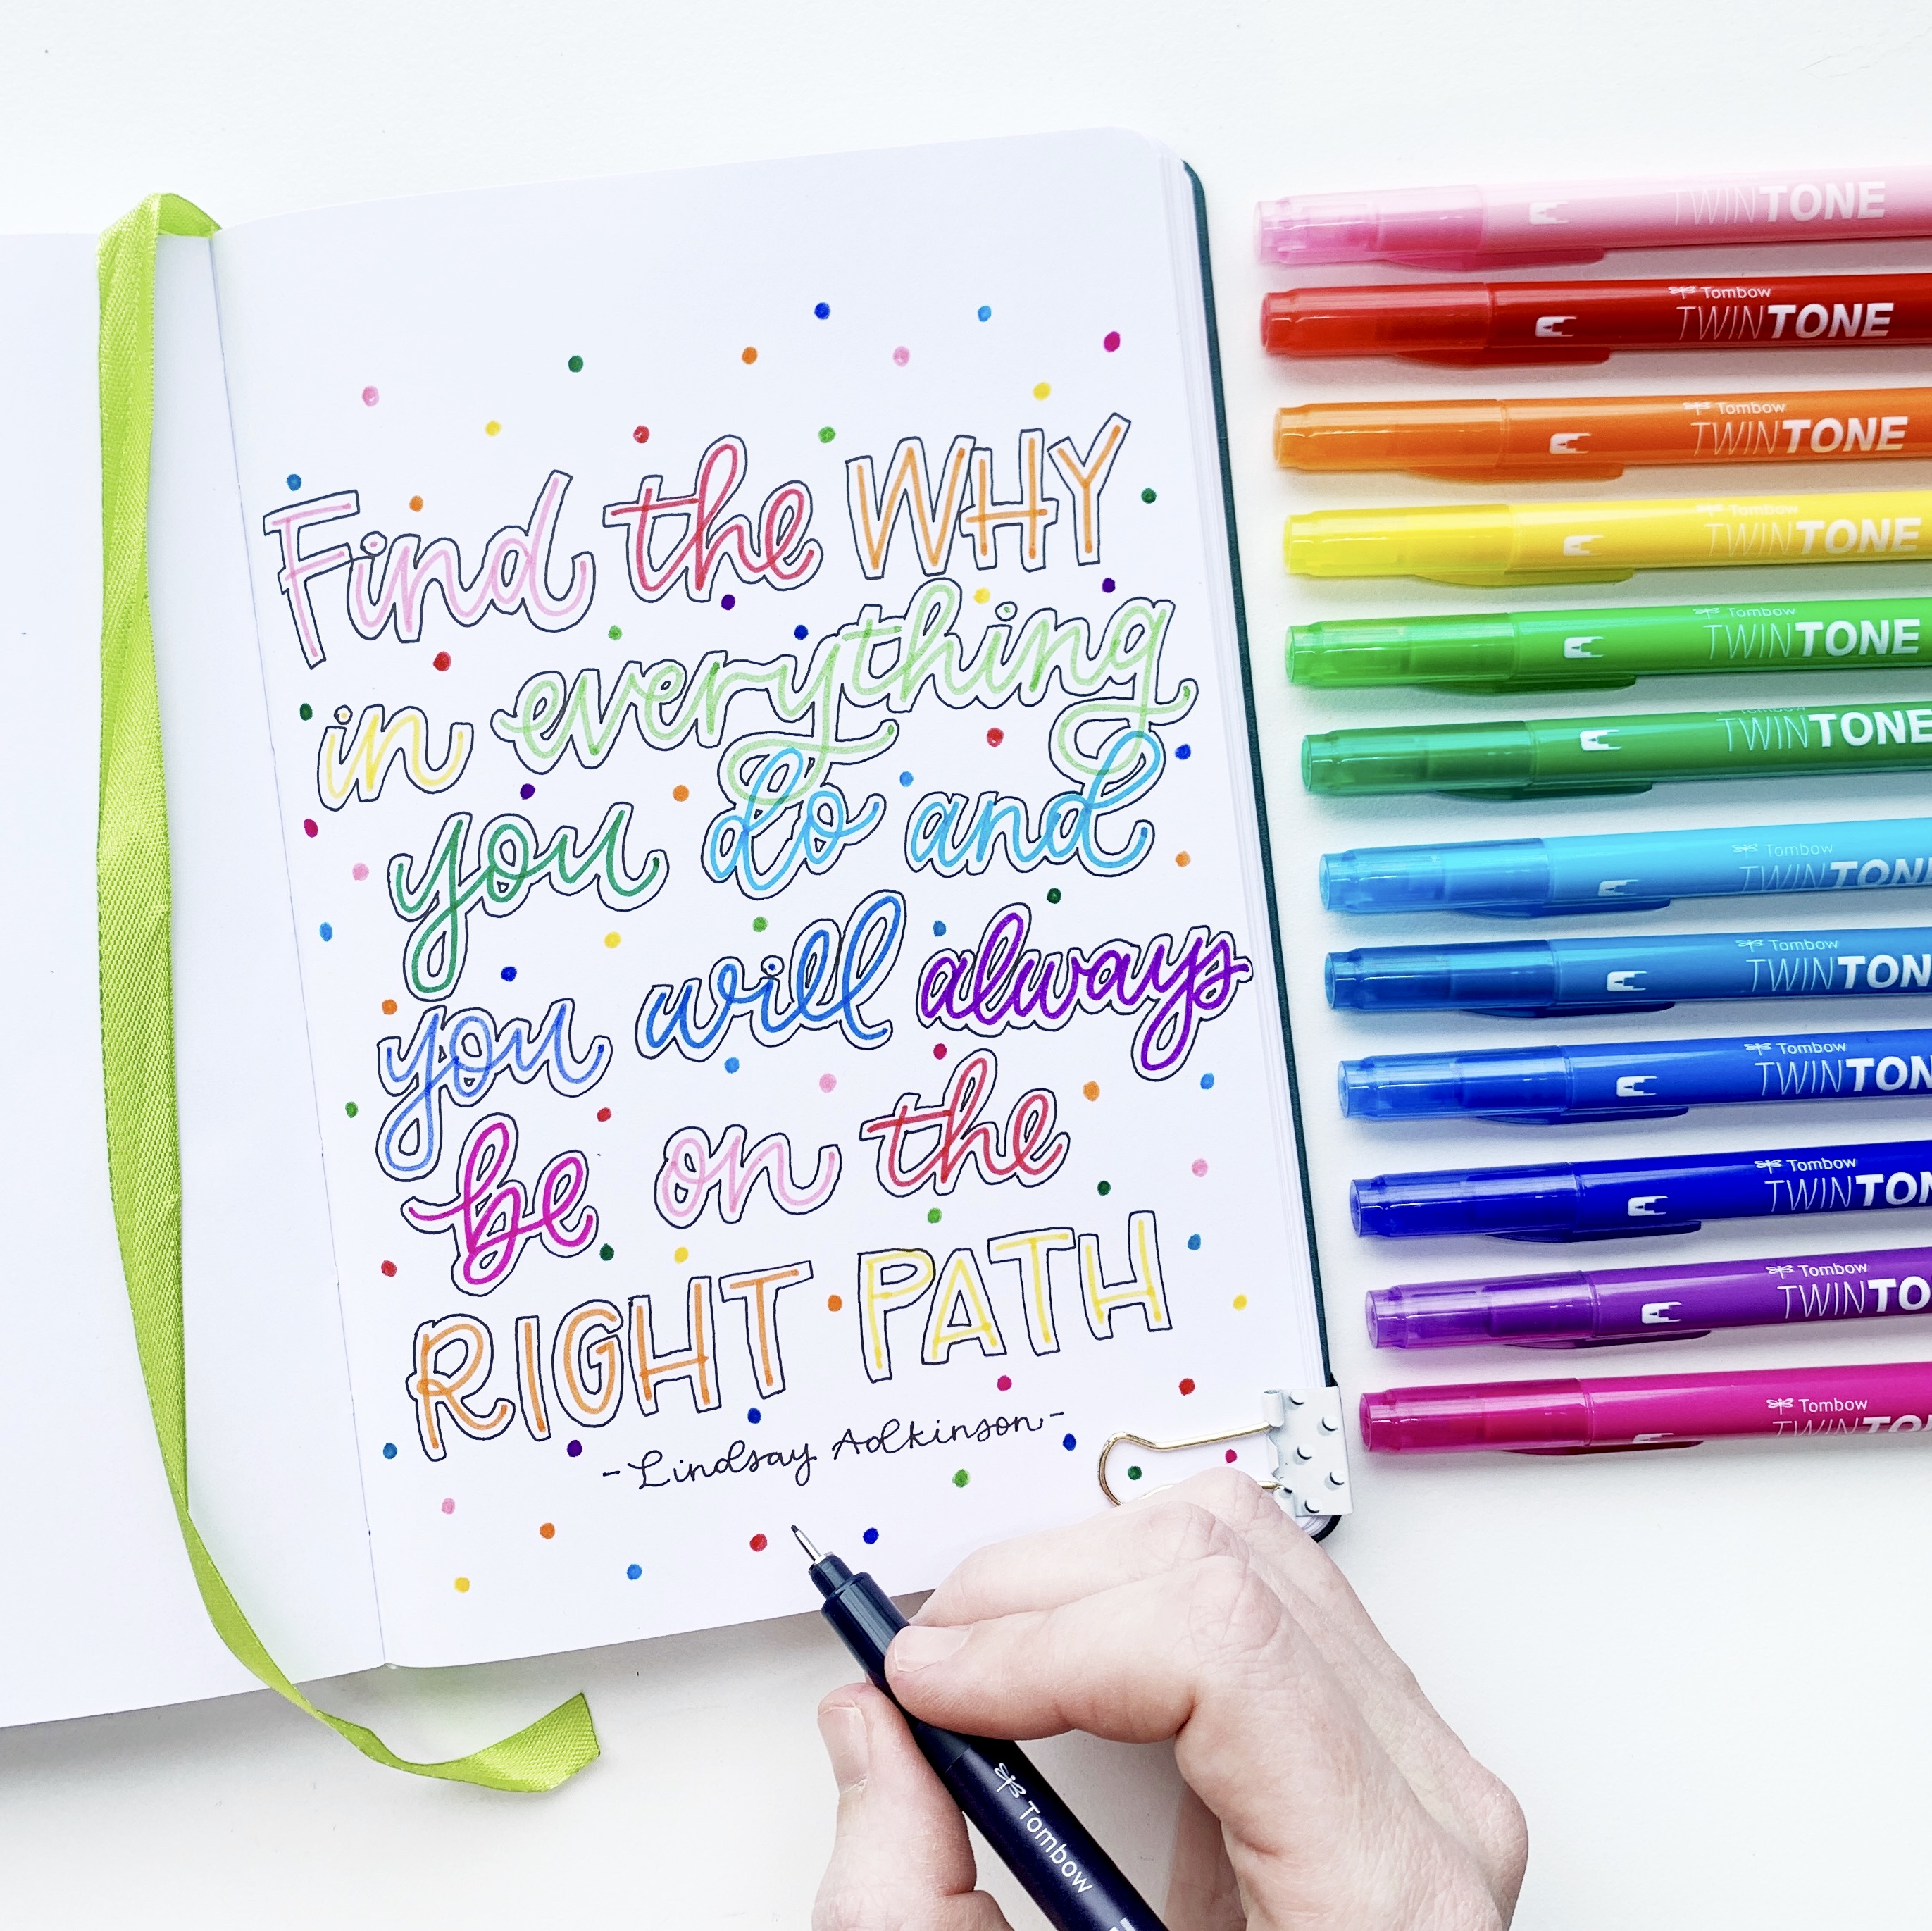 Find the WHY
in everything
you do and
you will always
be on the
RIGHT PATH
-Lindsay Adkinson-
TWINTONE
Tombow
TWINTONE
Tombow
TWINTONE
Tombow
TWINTONE
Tombow
TWINTONE
Tombow
TWINTONE
Tombow
TWINTON
Tombow
TWINTON
Tombow
TWINTON
Tombow
TWINTON
Tombow
TWINTO
Tombow
TWINTO
Tombow